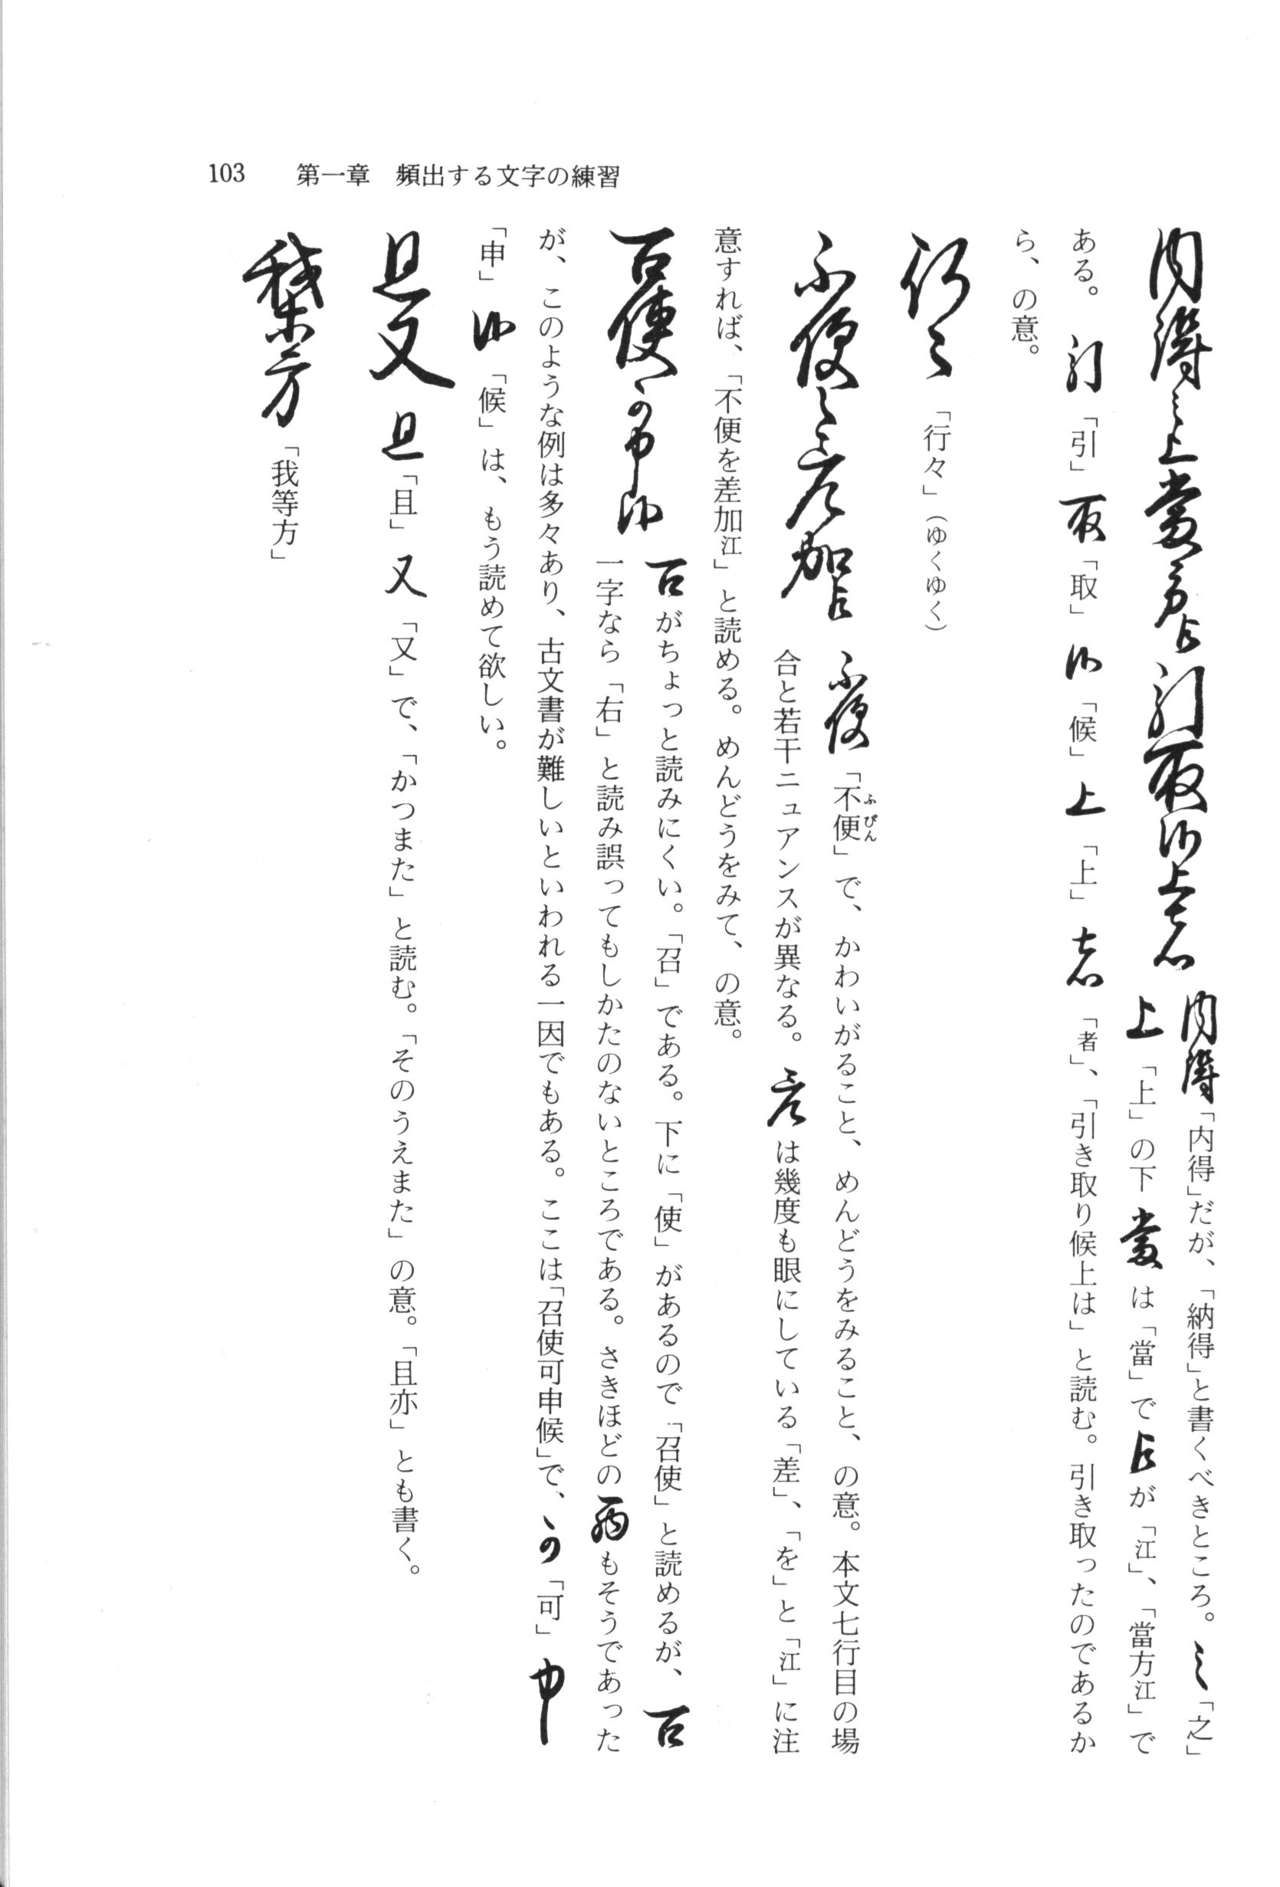 103　第一章　頻出する文字の練習
内得之上當方江引取候上者
内得「内得」だが、「納得」と書くべきところ。之「之」
上「上」の下當は「當」で江が「江」、「當方江」で
ある。引「引」取「取」候「候」上「上」者「者」、「引き取り候上は」と読む。引き取ったのであるか
ら、の意。
行々「行々」（ゆくゆく）
不便を差加江
不便「不便」で、かわいがること、めんどうをみること、の意。本文七行目の場
ふびん
合と若干ニュアンスが異なる。差は幾度も眼にしている「差」、「を」と「江」に注
意すれば、「不便を差加江」と読める。めんどうをみて、の意。
召使可申候
召がちょっと読みにくい。「召」である。下に「使」があるので「召使」と読めるが、召
一字なら「右」と読み誤ってもしかたのないところである。さきほどのもそうであった
が、このような例は多々あり、古文書が難しいといわれる一因でもある。ここは「召使可申候」で、可「可」申
「申」候「候」は、もう読めて欲しい。
且又且「且」又「又」で、「かつまた」と読む。「そのうえまた」の意。「且亦」とも書く。
我等方「我等方」